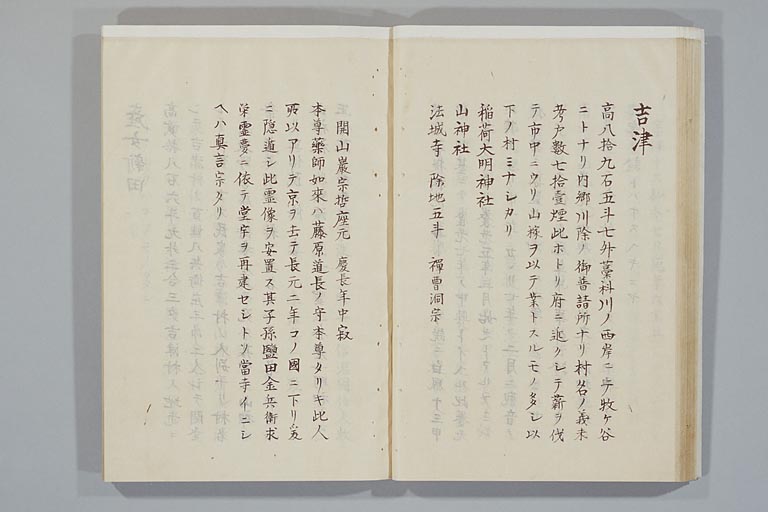 吉津
高八拾九石五斗七升藁科川ノ西岸ニ字牧ケ谷
ニトナリ内郷川除ノ御普請所ナリ村名ノ義未
考戸数七拾壹煙此ホトリ府ニ近クシテ薪ヲ伐
テ市中ニウリ山稼ヲ以テ業トスルモノ多シ以
下ノ村ミナシカリ
稲荷大明神社
山神社
法城寺 除地五斗 禪曹洞宗
開山巖宗哲座元 慶長年中寂
本尊藥師如來ハ藤原道長ノ守本尊タリキ此人
所以アリテ京ヲ去テ長元二年コノ國ニ下リ
ニ隠遁シ此霊像ヲ安置ス其子孫鹽田金兵衛求
栄霊夢ニ依テ堂宇ヲ再建セシトソ當寺イニシ
ヘハ真言宗タリ